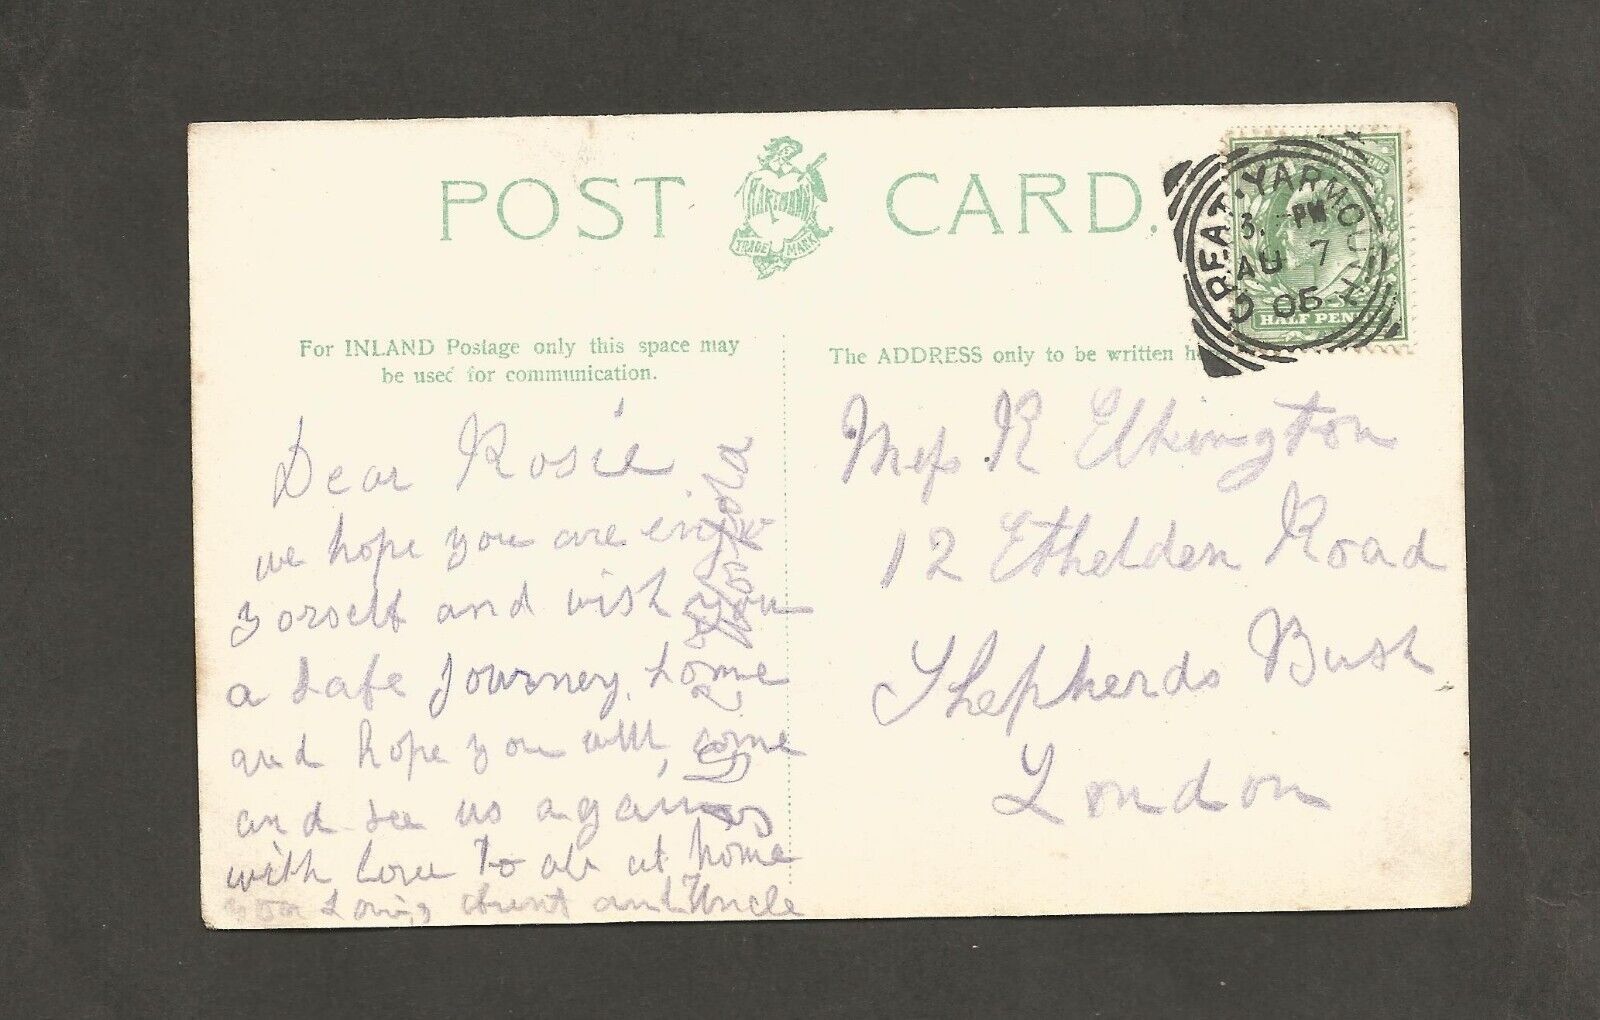 POST CARD.
HARTMANN
TRADE MARK
GREAT YARMOUTH
3. PM
AU 7
05
HALF PENNY
For INLAND Postage only this space may
be used for communication.
The ADDRESS only to be written h
Dear Rosie
we hope you are enjoy
yorself and wish you
a safe Journey, home
and hope you will, come
and see us again
with love to all at home
your Loving Aunt and Uncle
Miss R Elkington
12 Ethelden Road
Shepherds Bush
London